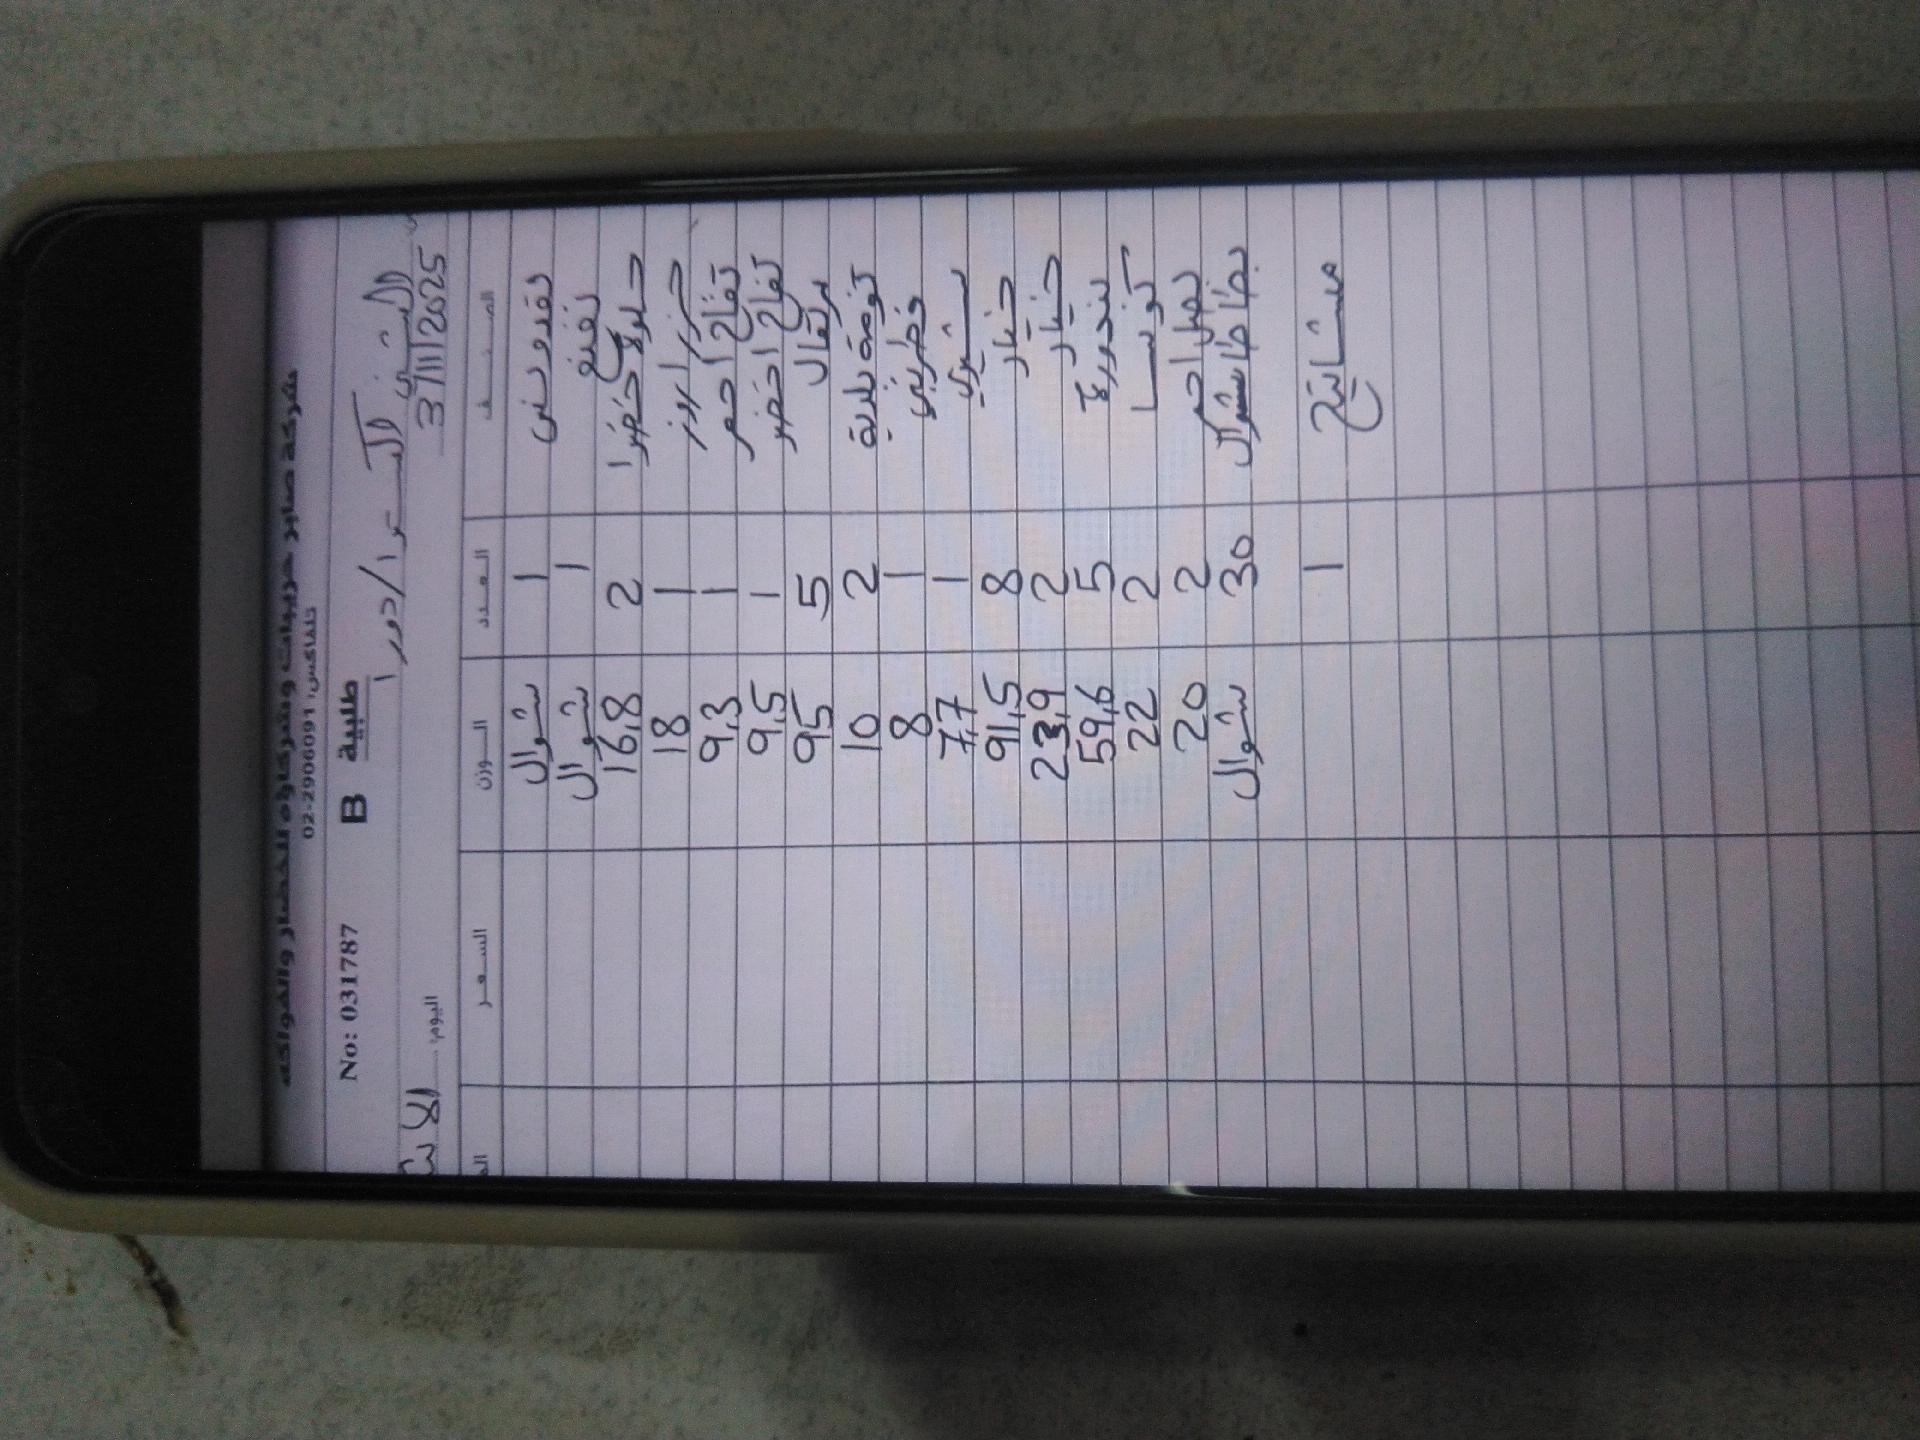 شركة صابر حربيات وشركاؤه للخضار والفواكه
تلفاكس: 02-2906091
No: 031787 B طلبية
/ دورا
اليوم 3/11/2025
الصنف العدد الوزن السعر
بقدونس 1 شوال
نعنع 1 شوال
خضرا 2 16,8
1 18
تفاح احمر 1 9,3
تفاح اخضر 1 9,5
برتقال 5 95
ثومة بلدية 2 10
1 8
1 7,7
خيار 8 91,5
خيار 2 23,9
بندورة 5 59,6
كوسا 2 22
بصل احمر 2 20
بطاطا شوال 30 شوال
1